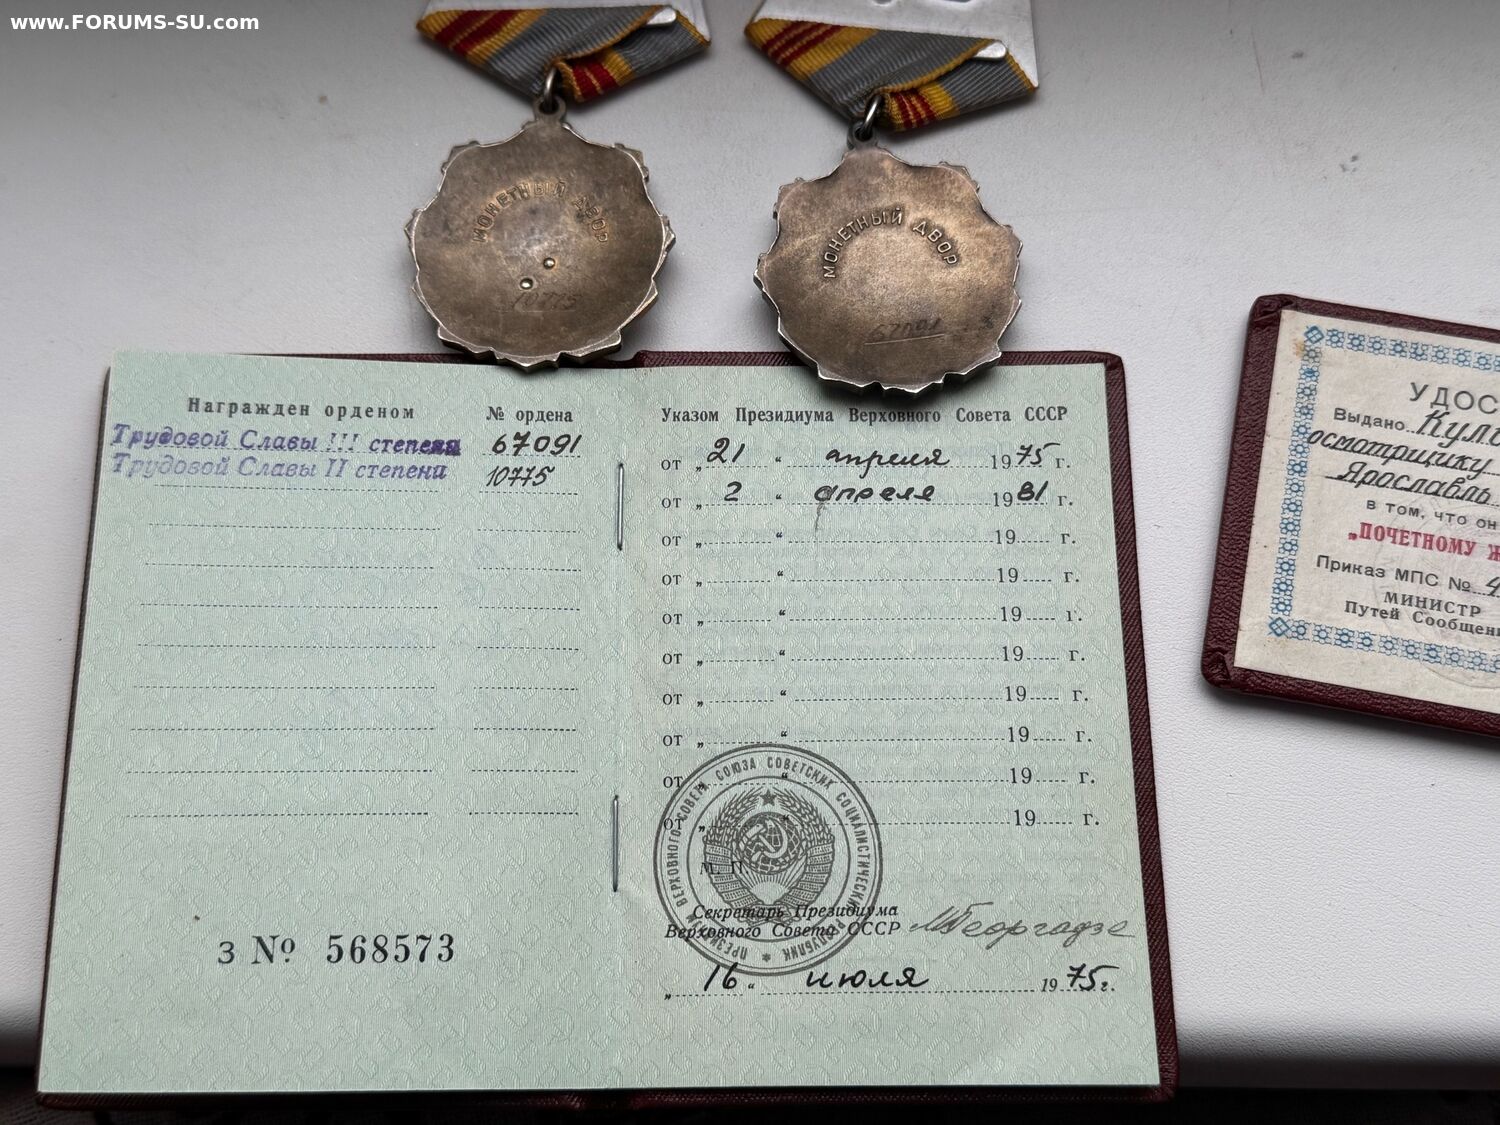 www.FORUMS-SU.com
МОНЕТНЫЙ ДВОР
10775
МОНЕТНЫЙ ДВОР
67091
Награжден орденом № ордена
Трудовой Славы !!! степени 67091
Трудовой Славы II степени 10775
З № 568573
Указом Президиума Верховного Совета СССР
от „ 21 “ апреля 1975 г.
от „ 2 “ апреля 1981 г.
от „ “ 19 г.
от „ “ 19 г.
от „ “ 19 г.
от „ “ 19 г.
от „ “ 19 г.
от „ “ 19 г.
от „ “ 19 г.
от „ “ 19 г.
ПРЕЗИДИУМ ВЕРХОВНОГО СОВЕТА СОЮЗА СОВЕТСКИХ СОЦИАЛИСТИЧЕСКИХ РЕСПУБЛИК
М. П.
Секретарь Президиума
Верховного Совета СССР МГеоргадзе
„ 16 “ июля 1975 г.
УДОС
Выдано Кули
осмотрщику
Ярославль
в том, что он
„ПОЧЕТНОМУ Ж
Приказ МПС № 4
МИНИСТР
Путей Сообщени